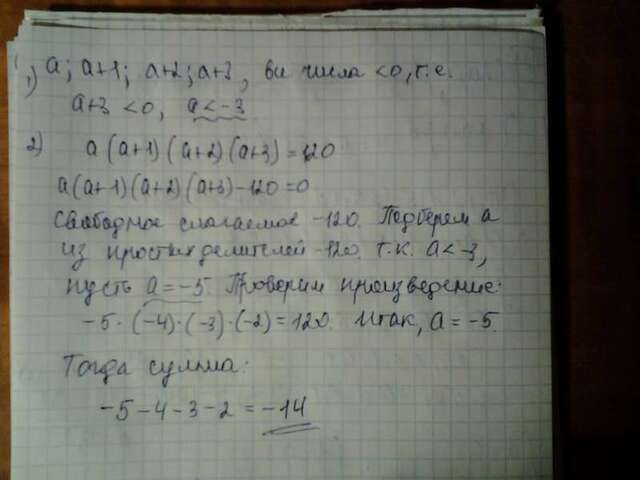 1) a; a+1; a+2; a+3, все числа <0, т.е.
a+3 <0, a<-3
2) a(a+1)(a+2)(a+3)=120
a(a+1)(a+2)(a+3)-120=0
Свободное слагаемое -120. Подберем a
из простых делителей -120. Т.к. a<-3,
пусть a=-5. Проверим произведение:
-5·(-4)·(-3)·(-2)=120. Итак, a=-5.
Тогда сумма:
-5-4-3-2=-14